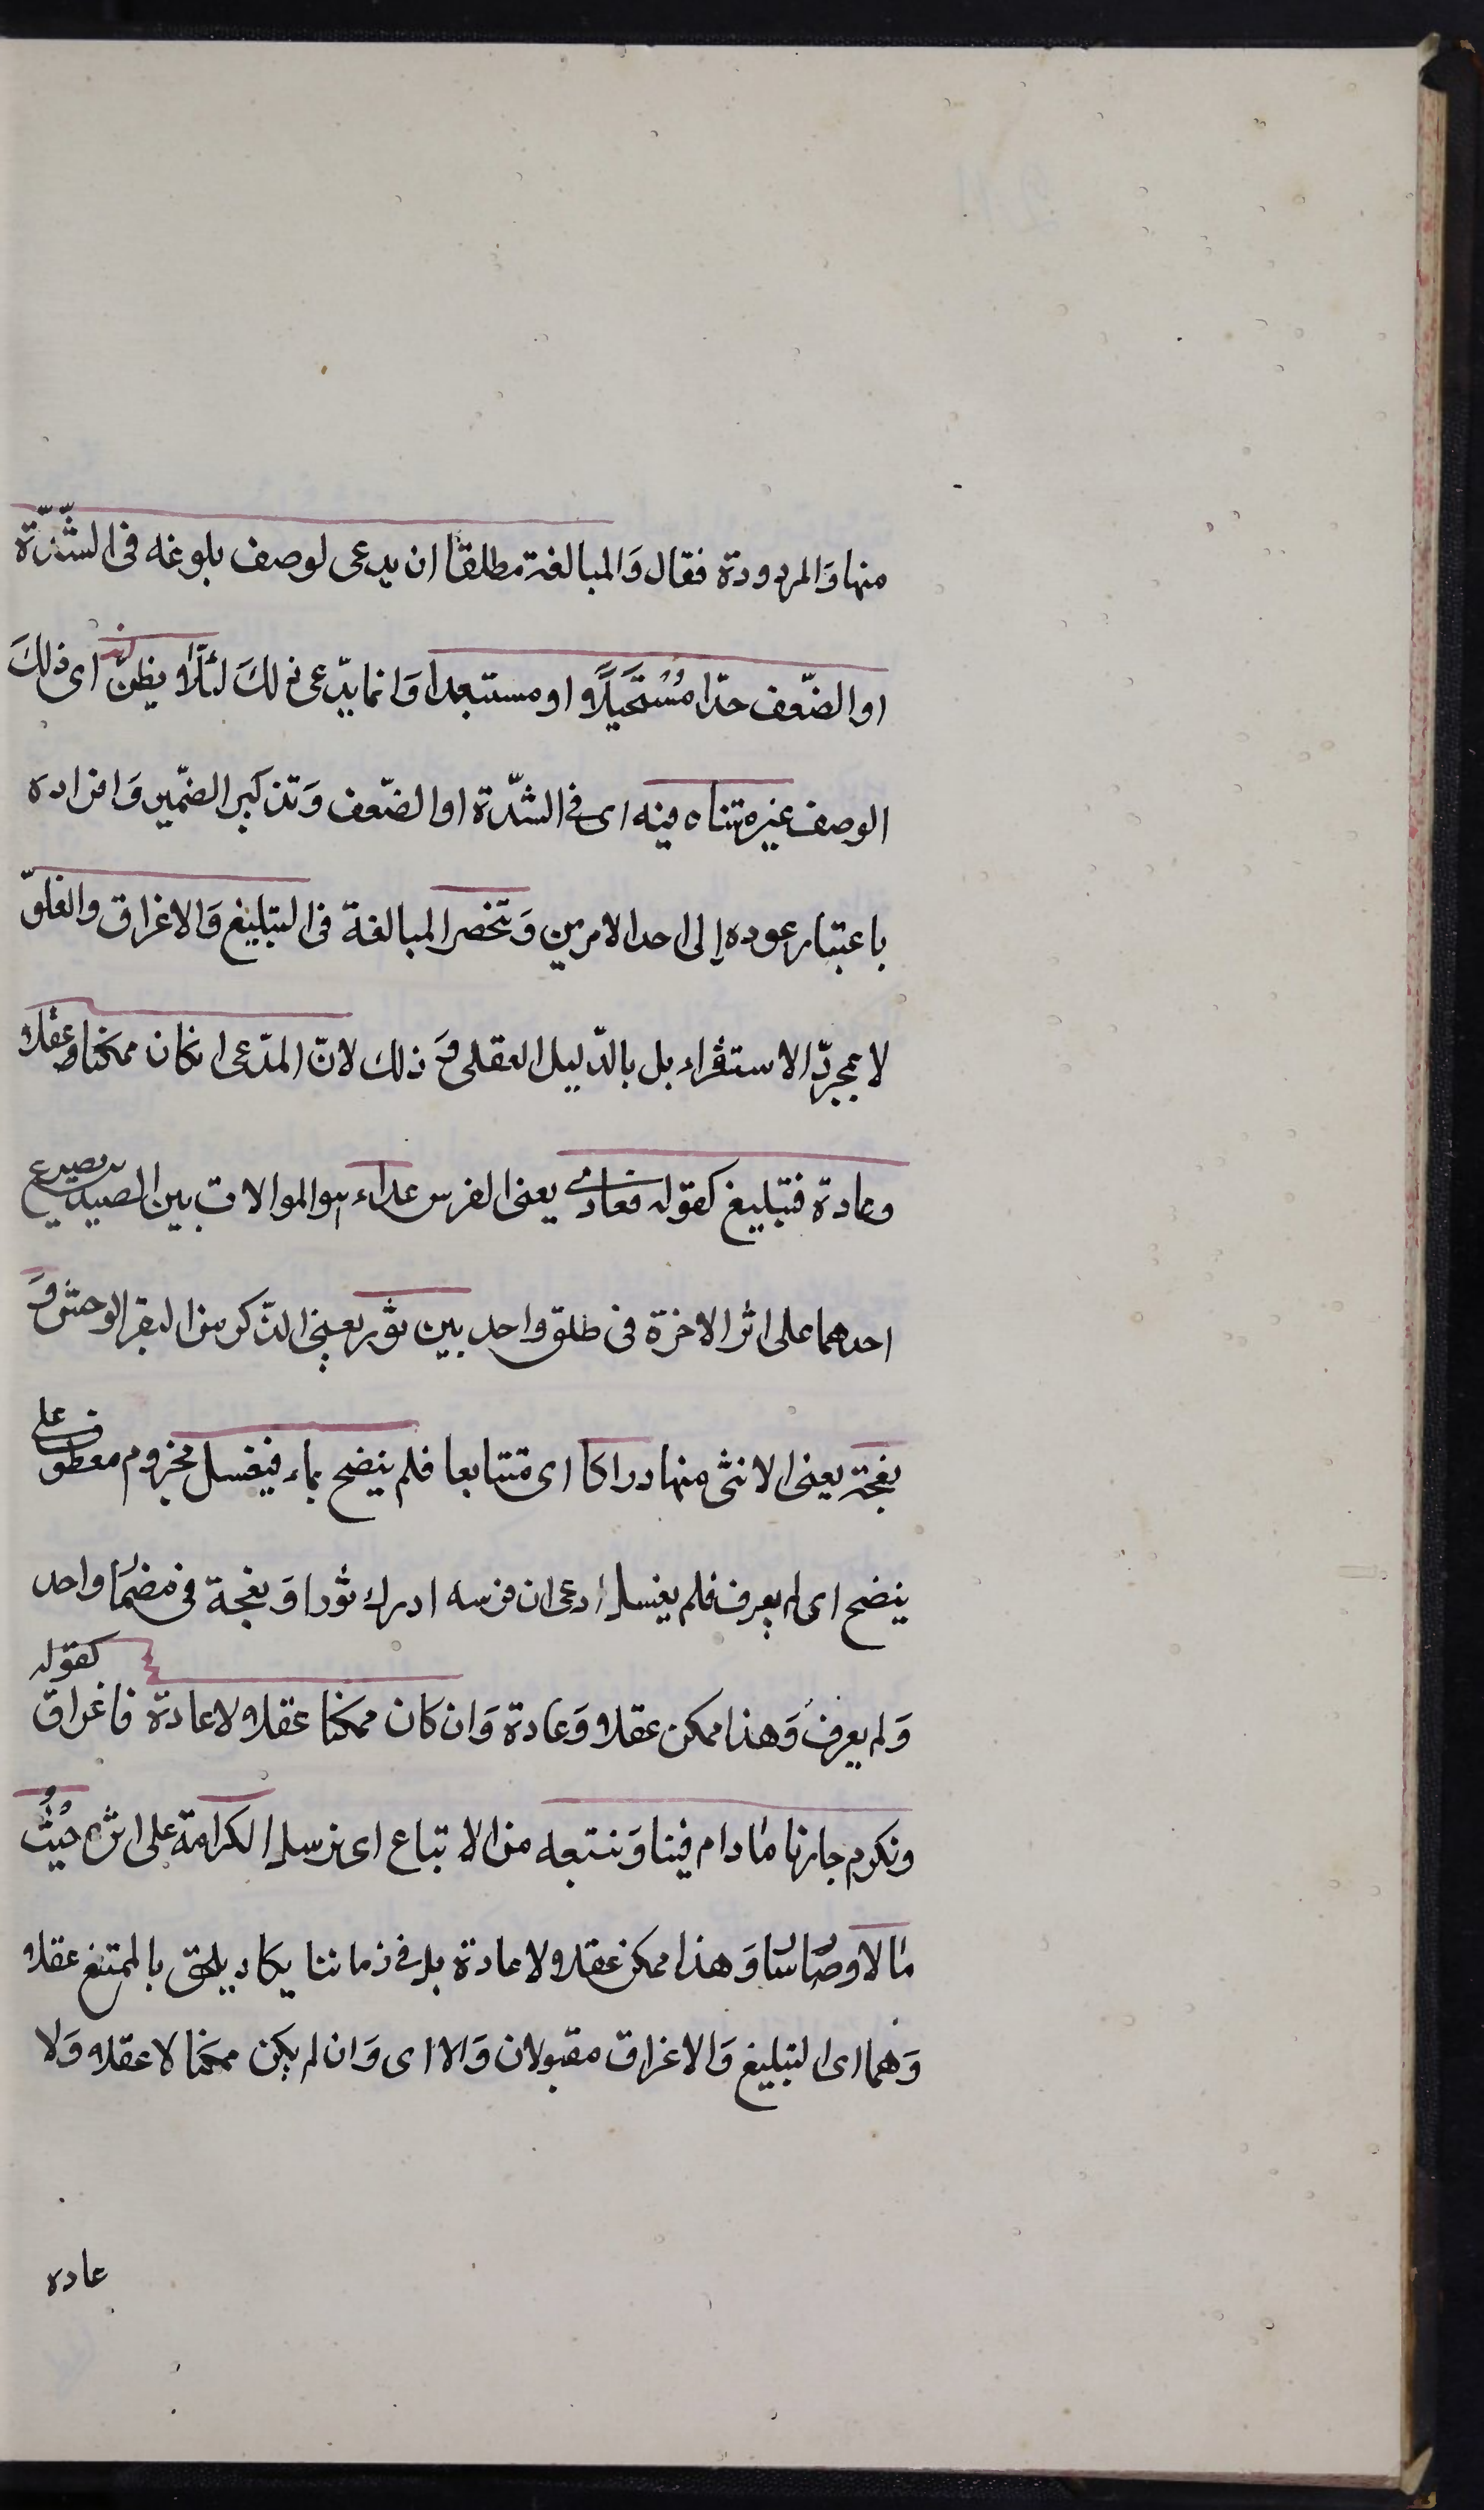 منها وَالمردودة فقال وَالمبالغة مطلقًا ان يدعى لوصف بلوغه فى الشّدّة
او الضّعف حدّا مُسْتَحَيلًا او مستبعدا وَانما يدّعى ذلكَ لئلّا يظنّ انه اى ذلكَ
الوصف غير متناه فيه اى فى الشدّة او الضّعف وَتذكير الضمّير وَافراده
باعتبار عوده إلى احد الامرين وَتنحصر المبالغة فى التبليغ وَالاغراق والغلوّ
لا بمجردّ الاستقراء بل بالدّليل العقلى وَ ذلك لانّ المدّعى ان كان ممكنا عقلا
وعادة فتبليغ كقوله فعادى يعنى الفرس عداء هو الموالات بين الصيدين يصرع
احدهما على اثر الاخرة فى طلق واحد بين ثور يعنى الذّكر من البقر الوحش وَ
نعجة يعنى الانثى منها دراكا اى متتابعا فلم ينضح بماء فيغسل مجزوم معطوف على
ينضح اى لم يعرف فلم يغسل ادعى ان فرسه ادرك ثورا وَ نعجة فى مضمار واحد
وَلم يعرف وَهذا ممكن عقلا وَعادة وَان كان ممكنا عقلا لا عادة فاغراق كقوله
ونكرم جارنا مَا دام فينا وَنتبعه من الاتباع اى نرسل الكرامة على اثره حَيْثُ
مَالا وصَاسَا وَهذا ممكن عقلا ولا عادة بل فى زماننا يكاد يلحق بالممتنع عقلا
وَهما اى التبليغ وَالاغراق مقبولان وَالا اى وَان لم يكن ممكنا لا عقلا وَلا
عاده